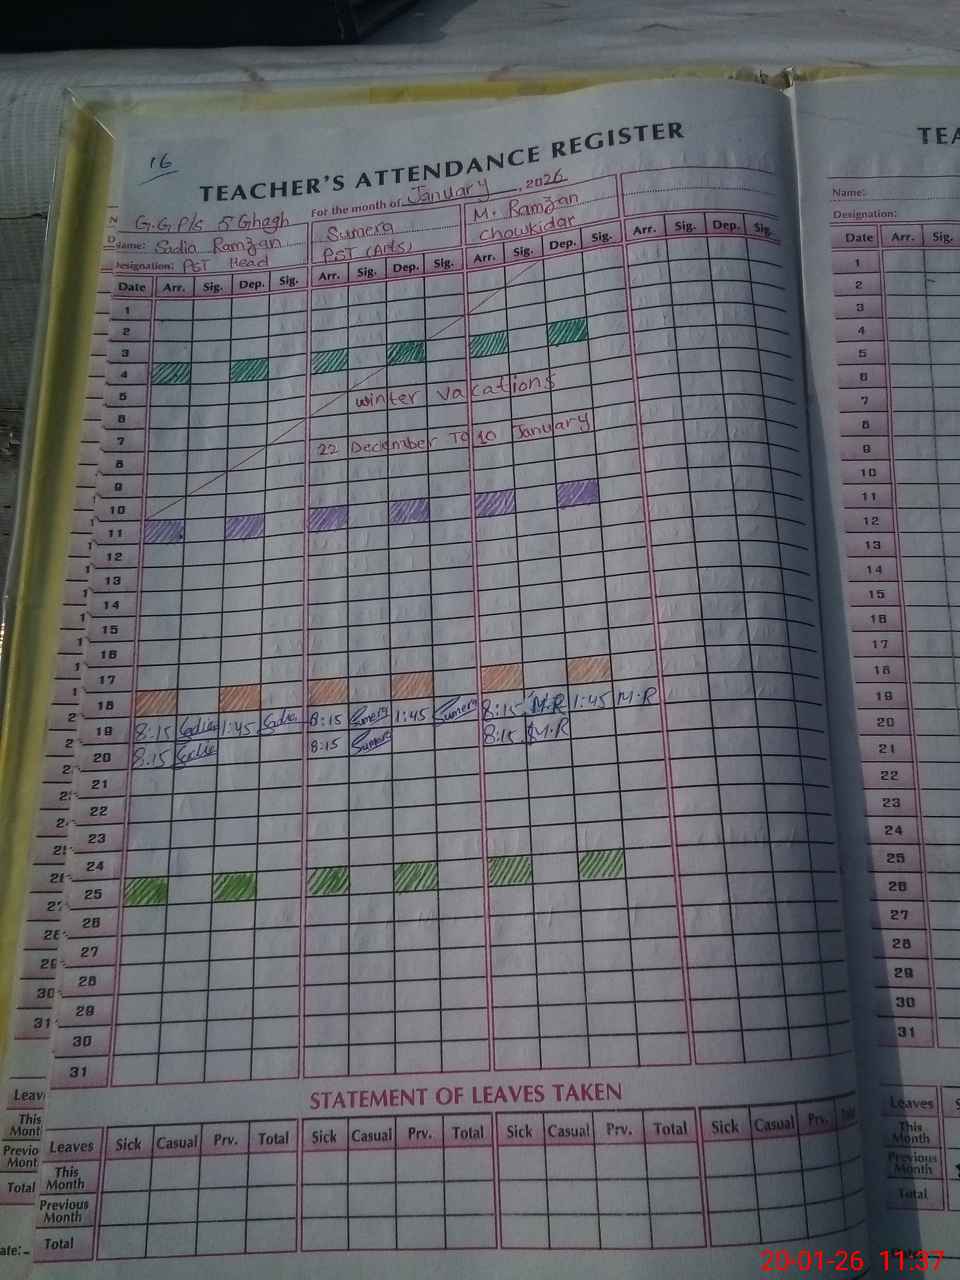 16
TEACHER'S ATTENDANCE REGISTER
For the month of January, 2026
G.G.P/s 5 Ghagh
Name: Sadia Ramzan
Designation: PST Head
Sumera
PST (Arts)
M. Ramzan
Chowkidar
Date Arr. Sig. Dep. Sig. Arr. Sig. Dep. Sig. Arr. Sig. Dep. Sig. Arr. Sig. Dep. Sig.
1
2
3
4
5
winter vacations
6
7
22 December To 10 January
8
9
10
11
12
13
14
15
16
17
18
19 8:15 Sadia 1:45 Sadia 8:15 Sumera 1:45 Sumera 8:15 M.R 1:45 M.R
20 8:15 Sadia 8:15 Sumera 8:15 M.R
21
22
23
24
25
26
27
28
29
30
31
STATEMENT OF LEAVES TAKEN
Leaves Sick Casual Prv. Total Sick Casual Prv. Total Sick Casual Prv. Total Sick Casual Prv. Total
This Month
Previous Month
Total
TEA
Name:
Designation:
Date Arr. Sig.
1
2
3
4
5
6
7
8
9
10
11
12
13
14
15
16
17
18
19
20
21
22
23
24
25
26
27
28
29
30
31
Leaves
This Month
Previous Month
Total
20-01-26 11:37